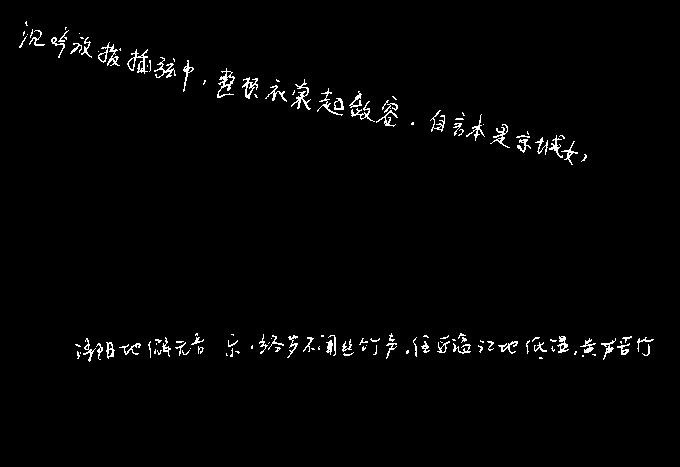 沉吟放拨插弦中，整顿衣裳起敛容．自言本是京城女，
浔阳地僻无音乐．终岁不闻丝竹声．住近湓江地低湿．黄芦苦竹